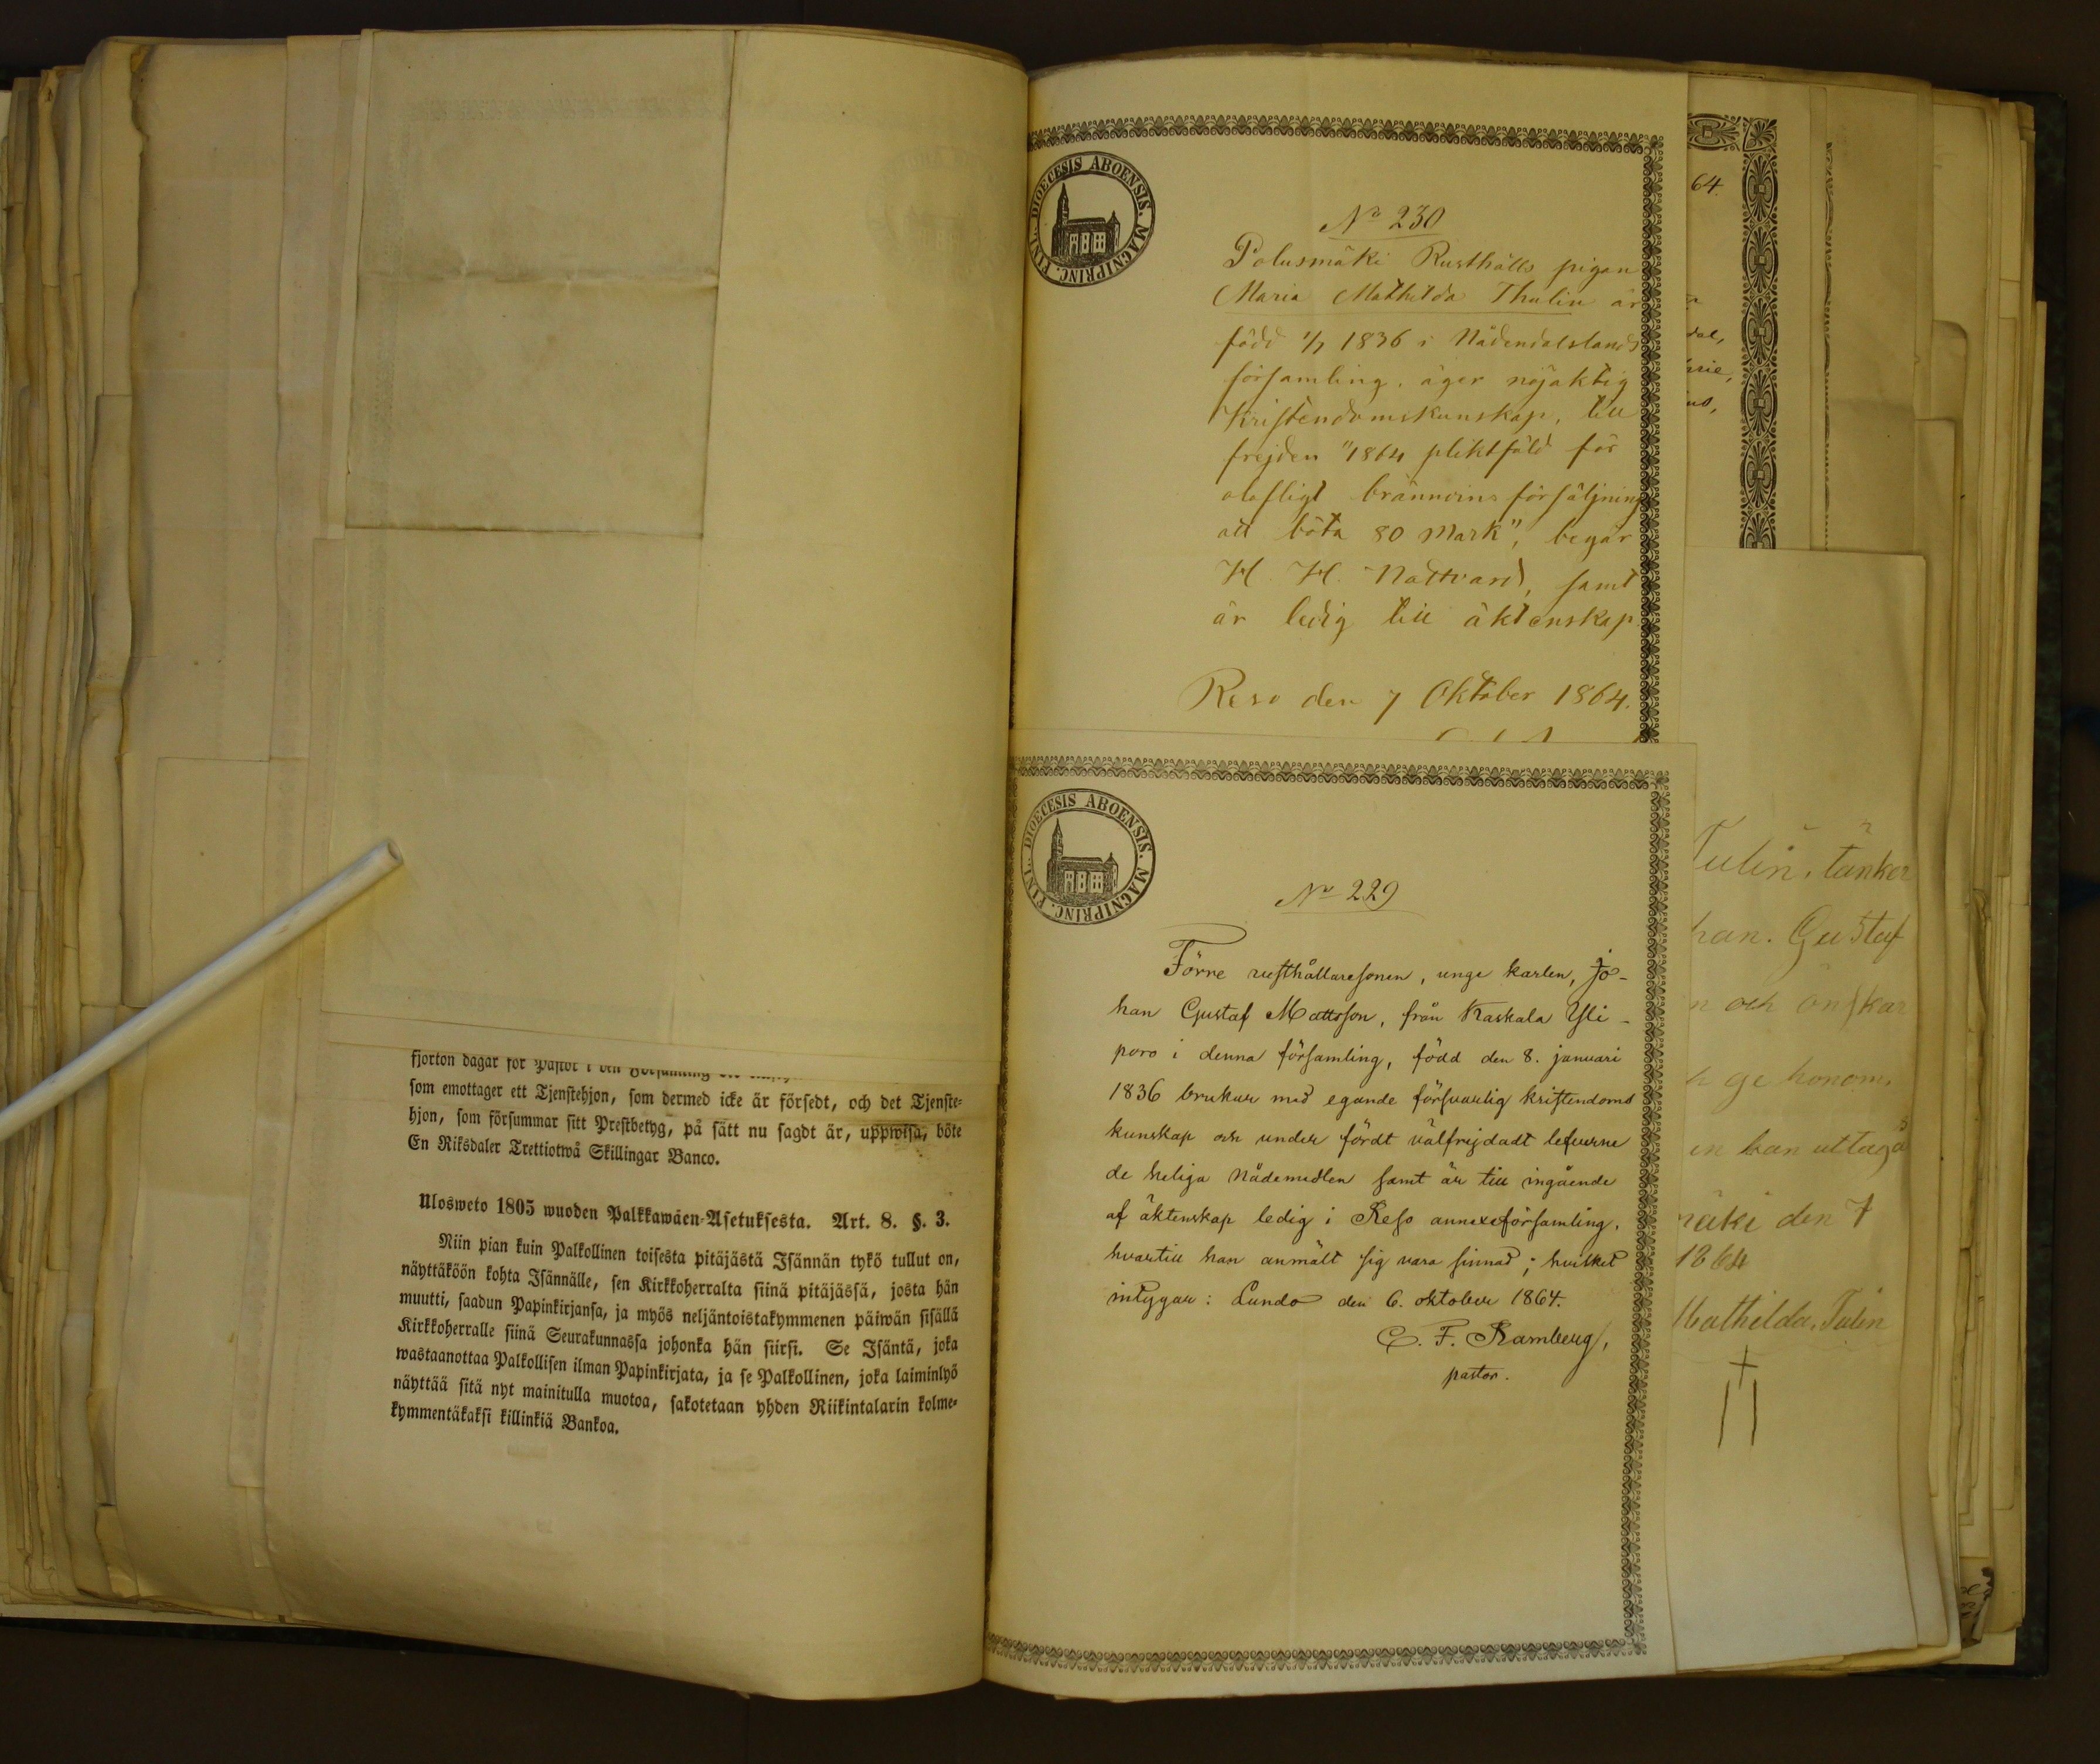 fjorton dagar för Pastor i den
som emottager ett Tjenstehjon, som dermed icke är försedt, och det Tjenste-
hjon, som försummar sitt Prestbetyg, på sätt nu sagdt är, uppwisa, böte
En Riksdaler Trettiotwå Skillingar Banco.
Ulosweto 1805 wuoden Palkkawäen-Asetuksesta. Art. 8. §. 3.
Niin pian kuin Palkollinen toisesta pitäjästä Isännän tykö tullut on,
näyttäköön kohta Isännälle, sen Kirkkoherralta siinä pitäjässä, josta hän
muutti, saadun Papinkirjansa, ja myös neljäntoistakymmenen päiwän sisällä
Kirkkoherralle siinä Seurakunnassa johonka hän siirsi. Se Isäntä, joka
wastaanottaa Palkollisen ilman Papinkirjata, ja se Palkollinen, joka laiminlyö
näyttää sitä nyt mainitulla muotoa, sakotetaan yhden Riikintalarin kolme-
kymmentäkaksi killinkiä Bankoa.
DIOECESIS ABOENSIS. MAGNIPRINC. FINL.
No 230
Polusmäki Rusthålls pigan
Maria Mathilda Thulin är
född 1/7 1836 i Nådendalslands
församling, äger nöjaktig
Kristendomskunskap, till
frejden "1864 pliktfäld för
olofligt brännvins försäljning
att böta 80 Mark", begår
H. H. Nattvard, samt
är ledig till äktenskap
Reso den 7 Oktober 1864.
DIOECESIS ABOENSIS. MAGNIPRINC. FINL.
No 229
Förre rusthållaresonen, unge karlen, Jo-
han Gustaf Mattsson, från Kaskala Yli-
poro i denna församling, född den 8. januari
1836 brukar med egande försvarlig kristendoms
kunskap och under fördt välfrejdadt lefverne
de heliga Nådemedlen samt är till ingående
af äktenskap ledig i Reso annexeförsamling,
hvartill han anmält sig vara sinnad; hvilket
intygar: Lundo den 6. oktober 1864.
C. F. Ramberg,
pastor.
64.
Tulin, tänker
han. Gustaf
n och önskar
ge honom.
en kan uttaga
mäki den 7
1864
Mathilda. Tulin